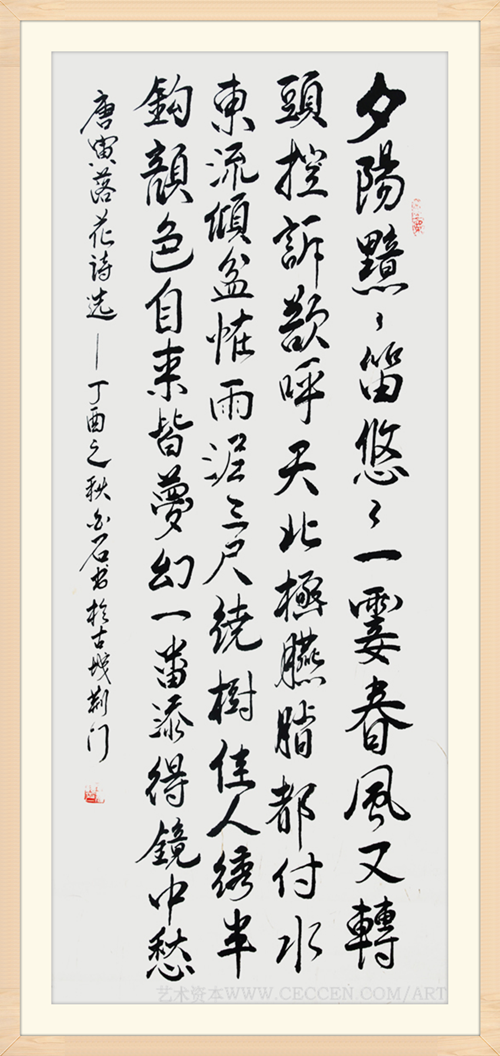 夕陽黯〻笛悠〻一霎春風又轉
頭控訴欲呼天北極臙脂都付水
東流傾盆怪雨泥三尺繞樹佳人綉半
鈎顏色自来皆夢幻一番添得鏡中愁
唐寅落花詩选—丁酉之秋石书於古城荆门
艺术资本WWW.CECCEN.COM/ART